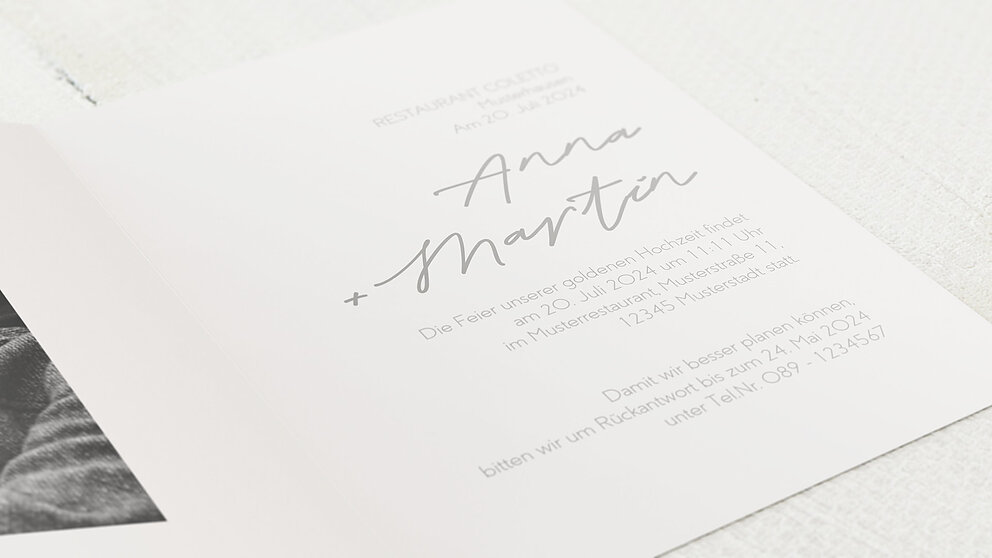 RESTAURANT COLETTO
Musterhausen
Am 20. Juli 2024
Anna
+ Martin
Die Feier unserer goldenen Hochzeit findet
am 20. Juli 2024 um 11:11 Uhr
im Musterrestaurant, Musterstraße 11,
12345 Musterstadt statt.
Damit wir besser planen können,
bitten wir um Rückantwort bis zum 24. Mai 2024
unter Tel.Nr. 089 - 1234567